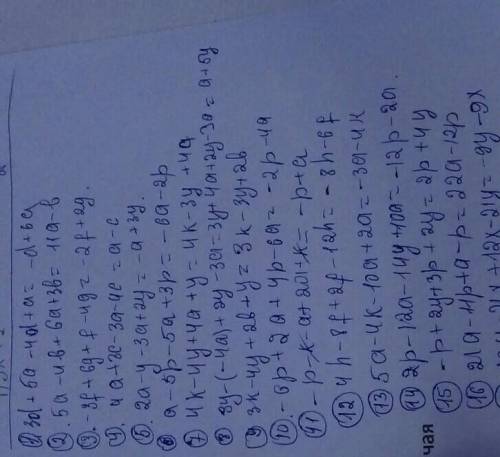 ① 3d+5a-4d+a=-d+6a
②. 5a-4b+6a+3b=11a-b
③. -3f+6g+f-4g=-2f+2g.
④. 4a+3c-3a-4c=a-c
⑤. 2a-y-3a+4y=-a+3y.
⑥ a-5p-5a+3p=-6a-2p
⑦ 4k-4y+4a+y=4k-3y+4a
⑧ 3y-(-4a)+2y-3a=3y+4a+2y-3a=a+5y
⑨ 3k-4y+2b+y=3k-3y+2b
⑩ -6p+2a+4p-6a=-2p-4a
⑪ -p-x-a+2a+x=-p+a
⑫ 4h-8f+2f-12h=-8h-6f
⑬ 5a-4k-10a+2a=-3a-4k
⑭ 2p-12a-14p+10a=-12p-2a.
⑮ -p+2y+3p+2y=2p+4y
⑯ 21a-11p+a-p=22a-12p
+12x-21y=-9y-9x
чая